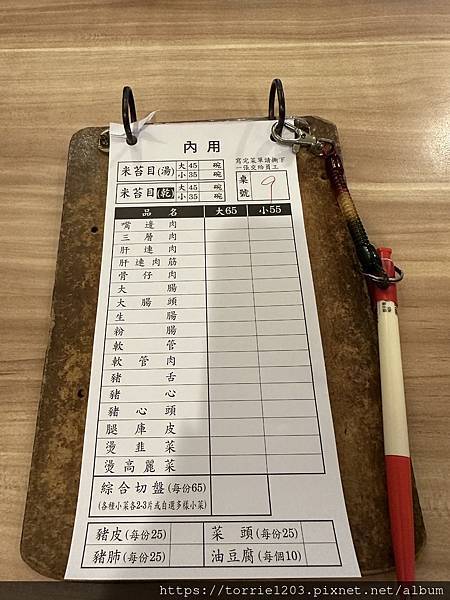 內用
米苔目(湯) 大 45 碗
小 35 碗
米苔目(乾) 大 45 碗
小 35 碗
寫完菜單請撕下
一張交給員工
桌號 9
品名 大65 小55
嘴邊肉
三層肉
肝連肉
肝連肉筋
骨仔肉
大腸
大腸頭
生腸
粉腸
軟管
軟管肉
豬舌
豬心
豬心頭
腿庫皮
燙韭菜
燙高麗菜
綜合切盤(每份65)
(各種小菜各2-3片或自選多樣小菜)
豬皮(每份25) 菜頭(每份25)
豬肺(每份25) 油豆腐(每個10)
https://torrie1203.pixnet.net/album